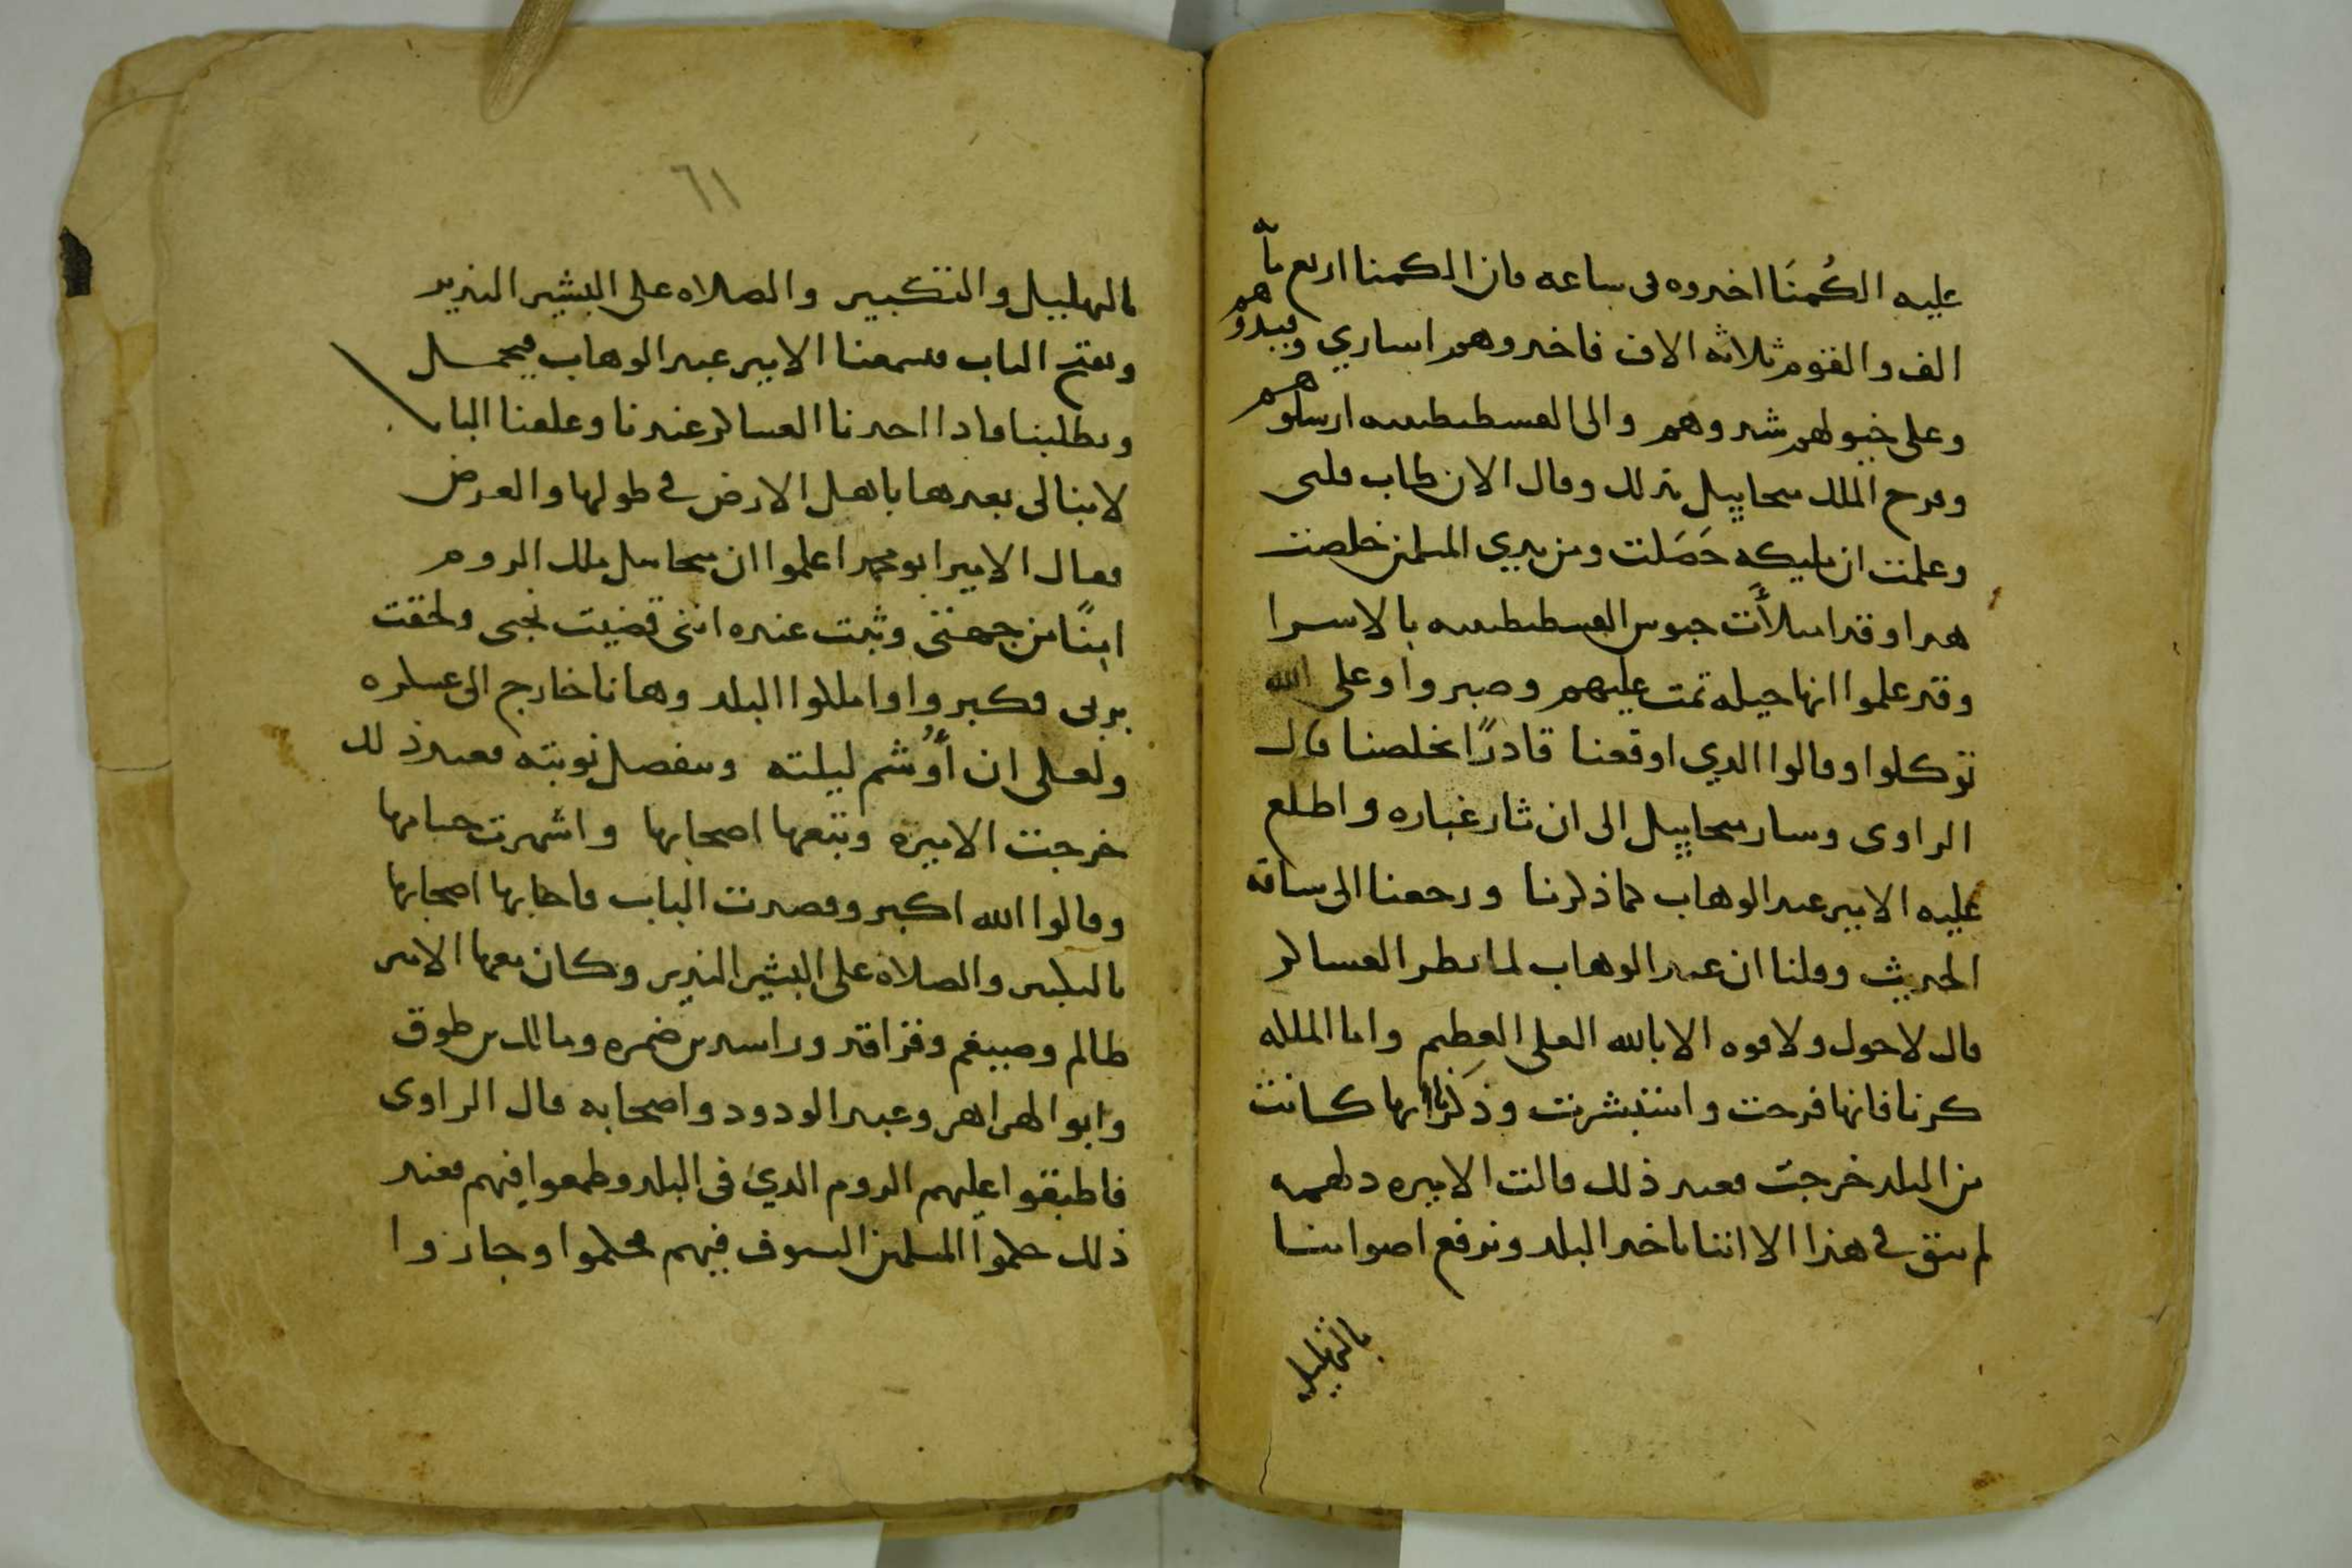 عليه الكُمنَا اخدوه فى ساعه فان الكمنا اربع مأة
الف والقوم ثلاثه الاف فاخدوهم اساري وقيدوهم
وعلى خيولهم شدوهم والى القسطنطينيه ارسلوهم
وفرح الملك ميخاييل بذلك وقال الان طاب قلبى
وعلمت ان مليكه حَصَلت ومن يدي المسلمين خلصت
هدا وقد امتلأت حبوس القسطنطينيه بالاسرا
وقد علموا انها حيله تمت عليهم وصبروا وعلى الله
توكلوا وقالوا الدي اوقعنا قادرًا يخلصنا قال
الراوى وسار ميخاييل الى ان ثار غباره واطلع
عليه الامير عبد الوهاب كما ذكرنا ورجعنا الى ساقة
الحديث وقلنا ان عبد الوهاب لما نظر العساكر
قال لا حول ولا قوه الا بالله العلى العظيم واما الملكه
كرنا فانها فرحت واستبشرت وذكرنا انها كانت
من البلد خرجت فعند ذلك قالت الاميره دلهمه
لم يبق في هذا الا اننا ناخد البلد ونرفع اصواتنا
بالتهليل
٦١
بالتهليل والتكبير والصلاه على البشير النذير
ونفتح الباب فيسمعنا الامير عبد الوهاب فيحمل
ويطلبنا فادا اخدنا العساكر عندنا وغلقنا الباب
لا نبالى بعدها باهل الارض في طولها والعرض
فقال الامير ابو محمد اعلموا ان ميخاييل ملك الروم
امنًا من جهتى وثبت عنده اننى قضيت نحبى ولحقت
بربى فكبروا واملكوا البلد وها نا خارج الى عسكره
ولعلى ان أوُشم ليلته وينفصل نوبته فعند ذلك
خرجت الاميره وتبعها اصحابها واشهرت حسامها
وقالوا الله اكبر وقصدت الباب فاجابها اصحابها
بالتكبير والصلاه على البشير النذير وكان معها الامير
ظالم وصبيغم وفزاقد وراسد بن ضمره ومالك بن طوق
وابو الهزاهز وعبد الودود واصحابه قال الراوى
فاطبقوا عليهم الروم الدي فى البلد وطمعوا فيهم فعند
ذلك حكموا المسلمين السيوف فيهم فحكموا وجازوا